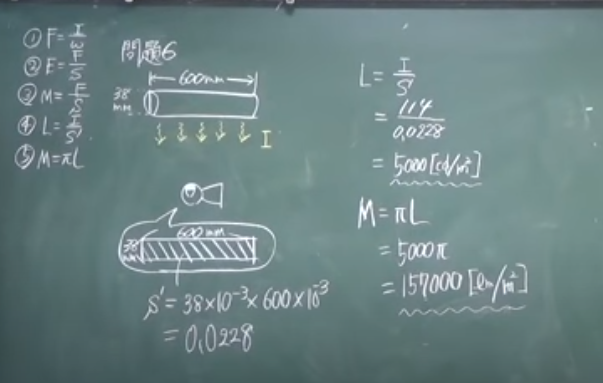 ① F=I/ω
② E=F/S
③ M=F/S
④ L=I/S'
⑤ M=πL
問題6
600mm
38
mm
I
600mm
38
mm
S'=38×10⁻³×600×10⁻³
=0.0228
L=I/S'
=114/0.0228
=5000[cd/m²]
M=πL
=5000π
=157000[lm/m²]